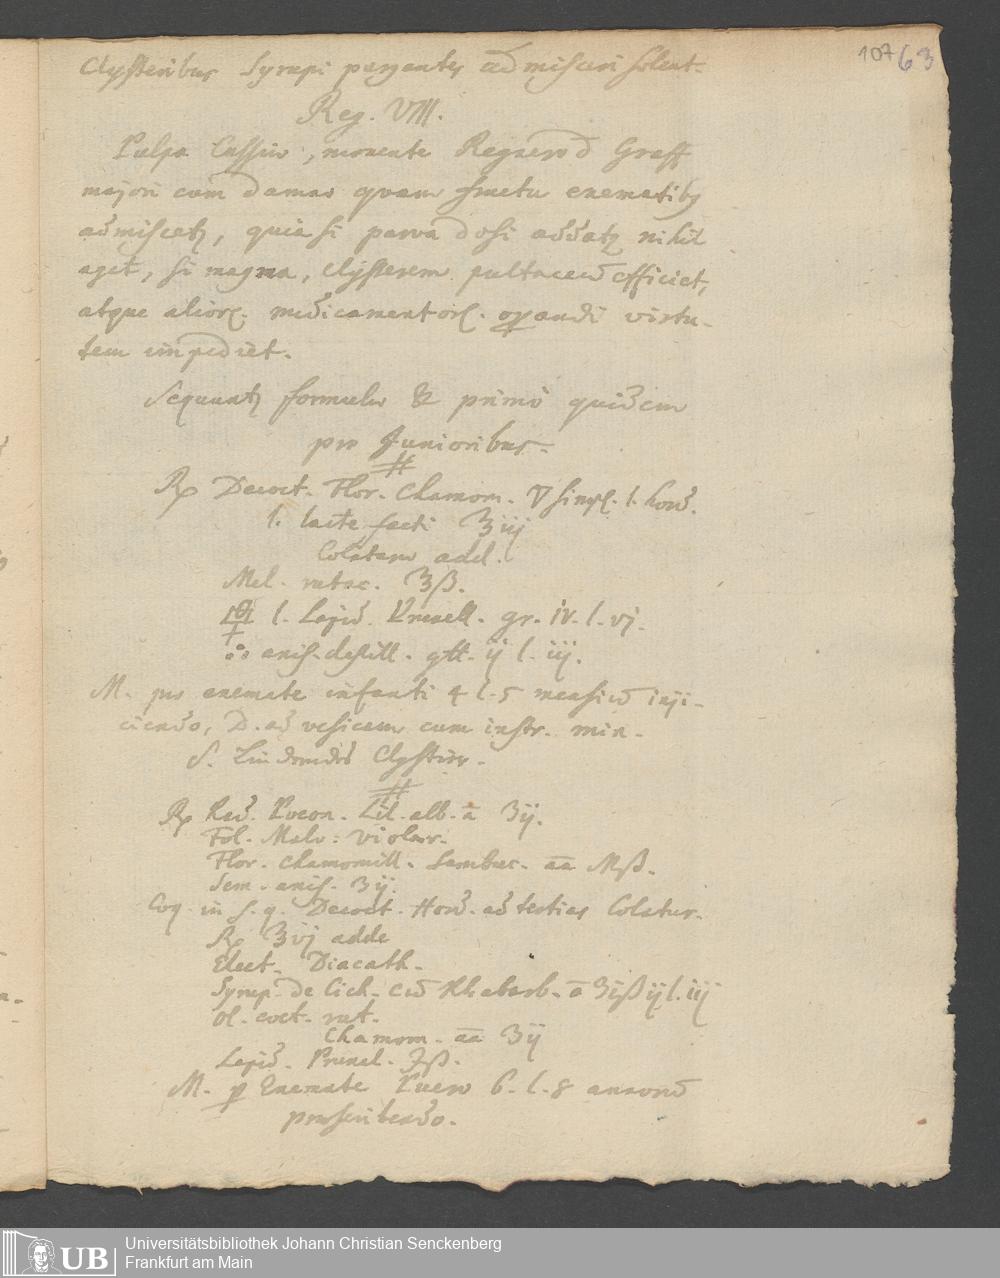 107 63
Clysteribus Syrupi purgantes admisceri solent.
Reg. VIII.
Pulpa Cassiæ, monente Regnero d Graeff
majori cum damno quam fructu enematibȝ
admiscetȝ, quia si parva dosi addatȝ nihil
aget, si magna, clysterem pultaceū efficiet,
atque alior. medicamentor. operandi virtu-
tem impediet.
Sequuntȝ formulæ & primò quidem
pro Junioribus.
#
℞ Decoct. Flor. Chamom. ▽ simpl. l. hord.
l. lacte facti ℥iij
Colatura add.
Mel. rosac. ℥ß.
l. Lapid. Prunell. gr. iv. l. vj.
anis. destill. gtt. ij l. iij.
M. pro enemate infanti 4 l. 5 mensiū inji-
ciendo, D. ad vesicam cum instr. min.
S. Linderndes Clystier.
#
℞ Rad. Lil. alb. ā ʒij.
Fol. Malv. violar.
Flor. Chamomill. Sambuc. āā Mß.
Sem. anis. ʒij.
Coq. in s. q. Decoct. Hord. ad tertias Colatur.
℞ ℥vj adde
Elect. Diacath.
Syrup. de Cich. cū Rhabarb. ā ʒiß ij l. iij
Ol. coct. rut.
Chamom. āā ʒij
Lapid. Prunel. ʒß.
M. p Enemate Puero 6. l. 8 annorū
præscribendo.
Universitätsbibliothek Johann Christian Senckenberg
Frankfurt am Main
UB